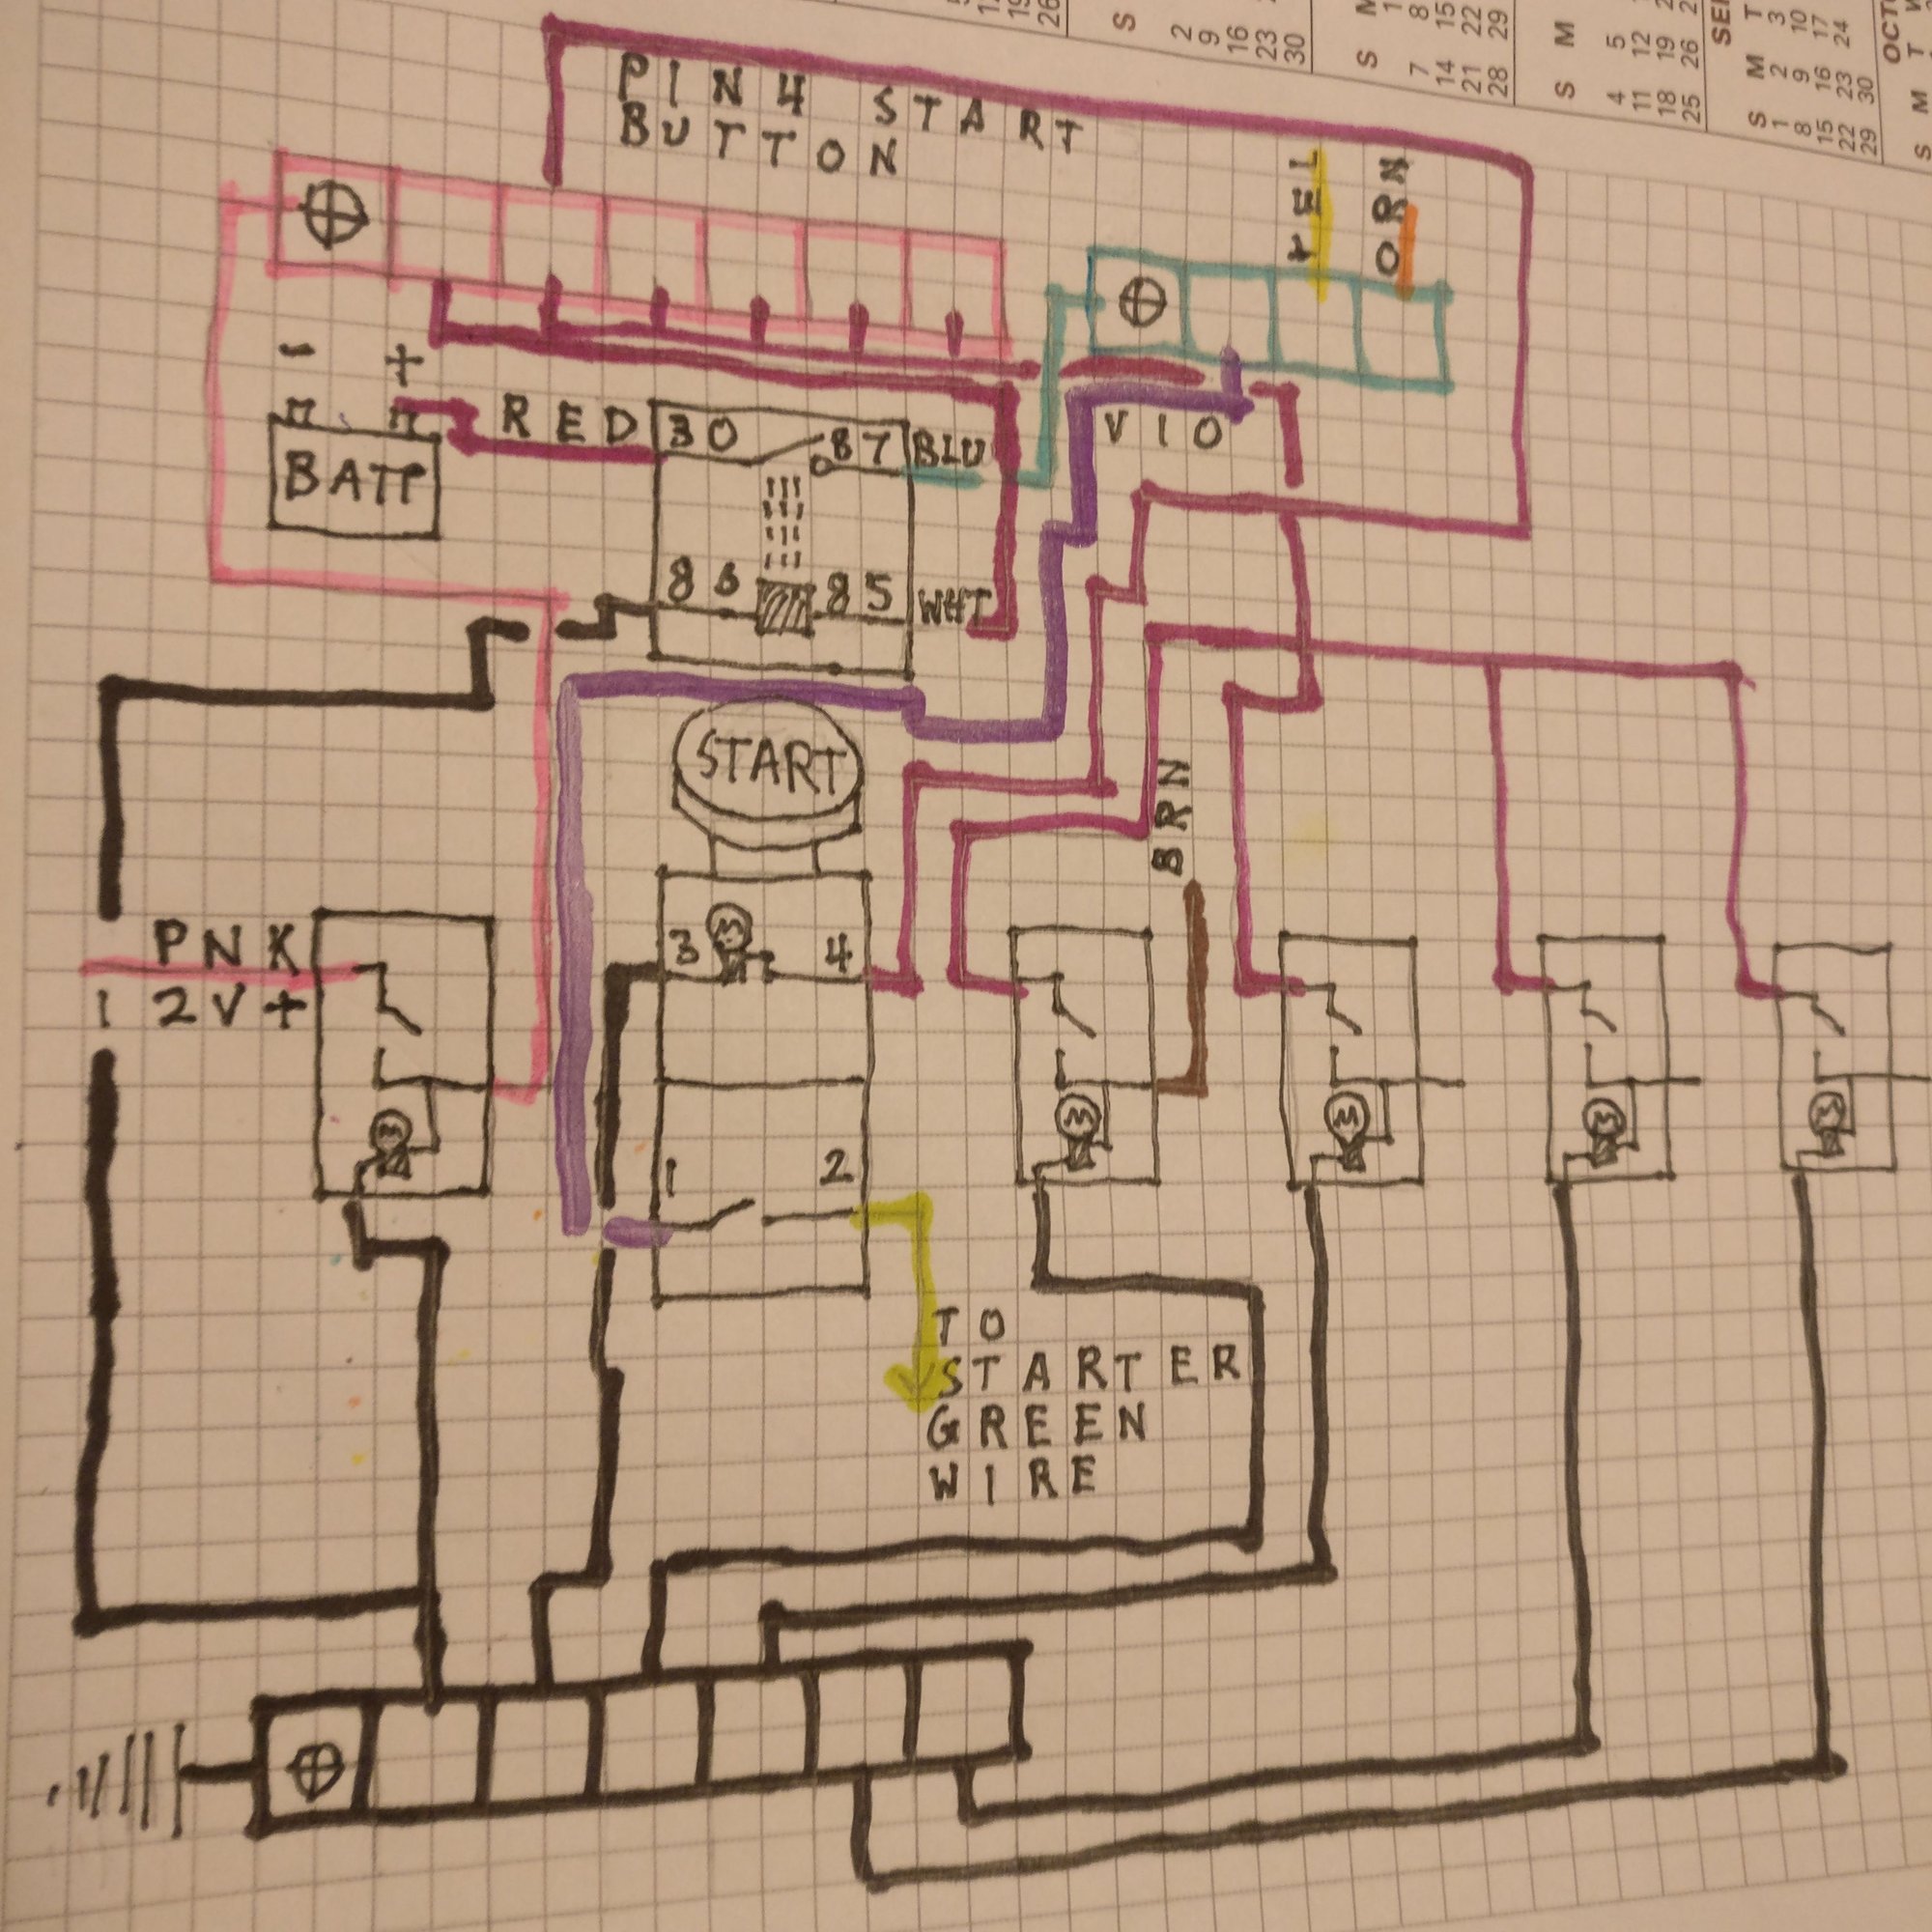 PIN 4 START
BUTTON
YEL
ORN
- +
BATT
RED
30
87
BLU
VIO
86
85
WHT
START
BRN
PNK
12V+
3
4
1
2
TO
STARTER
GREEN
WIRE
26
S
2
9
16
23
30
S M
1
7 8
14 15
21 22
28 29
S M
4 5
11 12
18 19
25 26
S M T
1 2 3
8 9 10
15 16 17
22 23 24
29 30
S M T